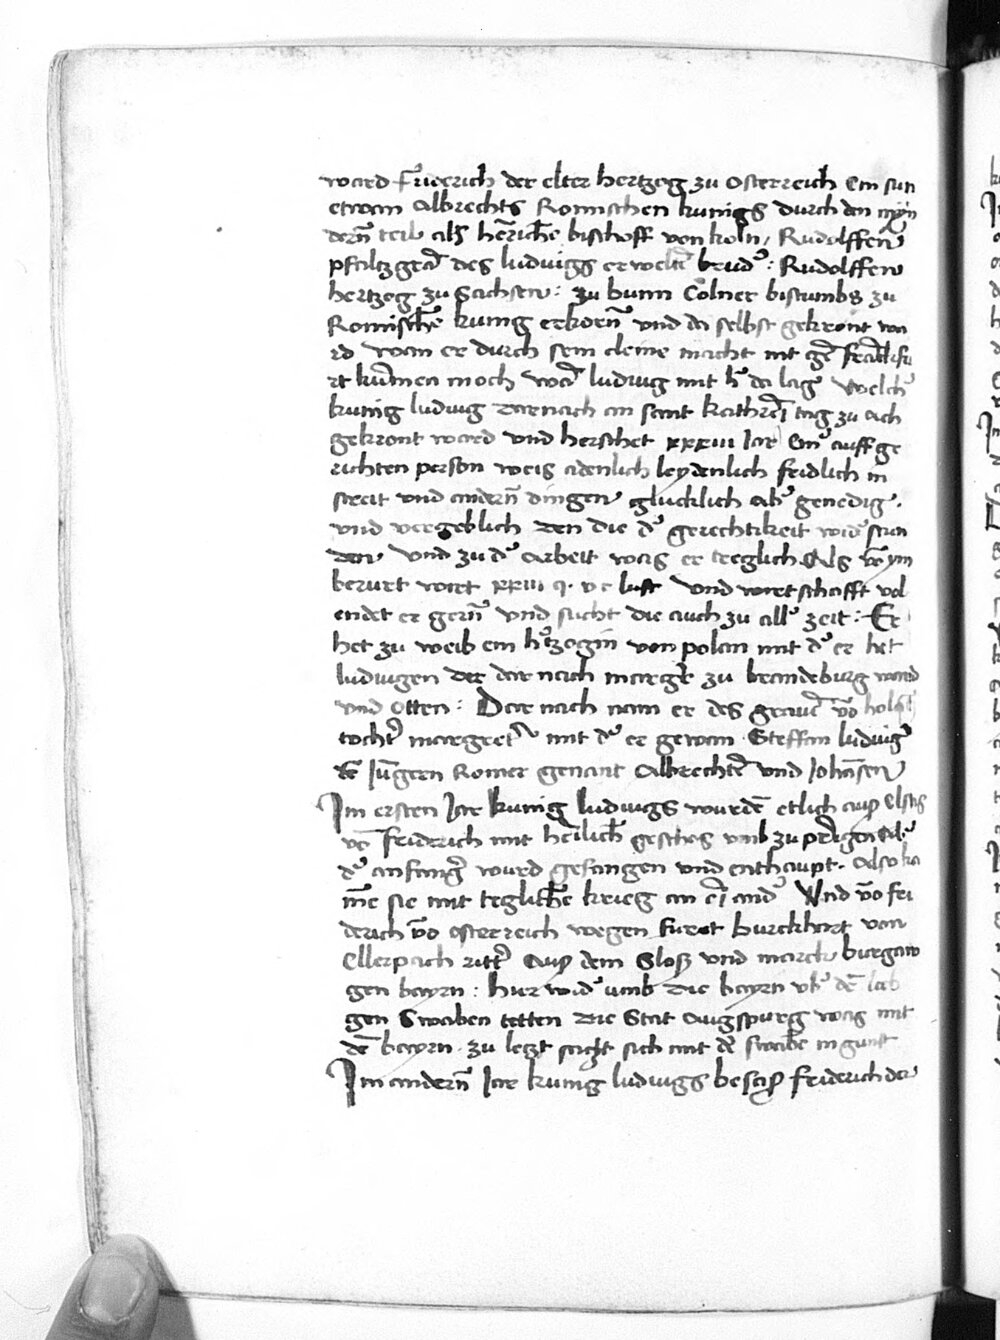 ward Friderich der elter hertzog zu Osterreich ein sun
etwan Albrechts Romischen kunigs durch den myn
dern teil als heinrichē bischoff von koln, Rudolffen
pfaltzgraf des ludwigs erweltē brudʼ : Rudolffen
hertzog zu Sachsen : zu bunn Colner bistumbs zu
Romischē kunig erkorn̄ und da selbst gekront wa
rd wan er durch sein cleine macht nit gē franckfu
rt kumen moch wan ludwig mit hʼ da lag welchʼ
kunig ludwig darnach an sant kathrei tag zu ach
gekront ward und herschet xxxiii Iar Einʼ auffge
richten person was adenlich leydenlich fridlich in
streit und andern̄ dingen glucklich Abʼ genedig .
und vergeblich den die dʼ gerechtikeit widʼ stun
den und zu dʼ arbeit was er treglich Als vō ym
berurt wirt lust und wirtschafft vol
endet er gern̄ und sucht die auch zu allʼ zeit : Er
het zu weib ein hʼtzogin von polan mit dʼ er het
ludwigen der dar nach margrē zu brandeburg ward
und Otten : Dar nach nam er des gravē vō
tochtʼ margretʼ mit dʼ er gewan Steffan ludwigʼ
dē Jūgern Romer genant Albrechtē und Johāsen
Im ersten Iar kunig ludwigs wurdē etlich auß Elsas
vō friderich mit heilichʼ gescheft umb zu
dʼ anfangʼ wurd gefangen und enthaupt . Also ka
mē sie mit teglichē krieg an ei andʼ Und vō fri
derich vō osterreich wegen furet burckhart von
Ellerpach rittʼ auß dem Sloß und marck burgaw
gen bayrn : hin widʼ umb die bayrn
gen Swaben tetten die Stat augspurg was mit
dē bayrn . zu letzt sich mit dē swabē in gunst
Im andern̄ Iar kunig ludwigs besaß friderich der